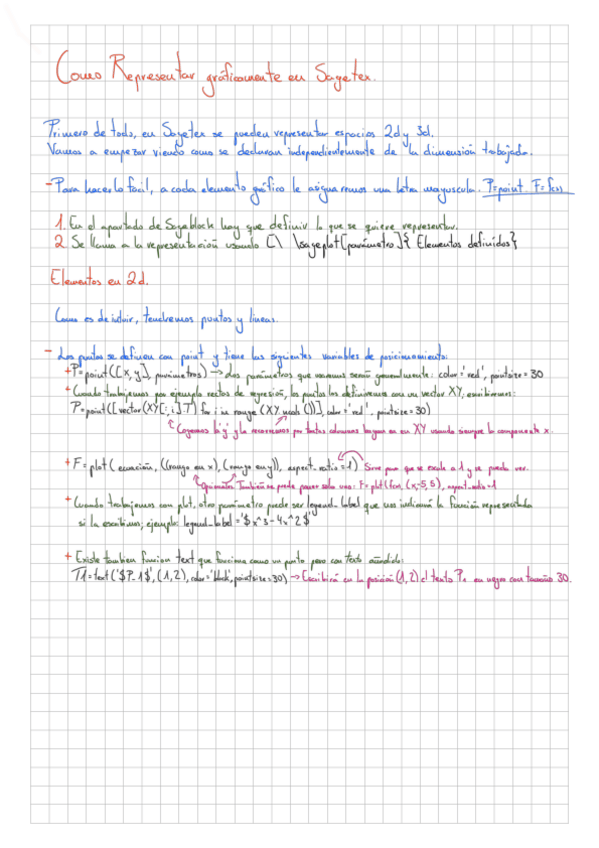 Como Representar gráficamente en Sagetex.
Primero de todo, en Sagetex se pueden representar espacios 2d y 3d.
Vamos a empezar viendo como se declaran independientemente de la dimensión trabajada.
- Para hacerlo fácil, a cada elemento gráfico le asignaremos una letra mayuscula. P=point F=f(x)
1. En el apartado de Sageblock hay que definir lo que se quiere representar.
2. Se llama a la representación usando [\ \sageplot[parámetro]{ Elementos definidos}
Elementos en 2d.
Como es de intuir, tendremos puntos y lineas.
- Los puntos se definen con point y tiene las siguientes variables de posicionamiento:
+ P=point([x,y], parámetros) → Los parámetros que usaremos serán generalmente: color='red', pointsize=30
+ Cuando trabajemos por ejemplo rectas de regresión, los puntos los definiremos con un vector XY, escribiremos:
P=point([vector(XY[:,i].T) for i in range (XY.ncols())], color='red', pointsize=30)
Cogemos la y y la recorremos por tantas columnas hayan en en XY usando siempre la componente x.
+ F=plot(ecuación, ((rango en x), (rango en y)), aspect_ratio=1) Sirve para que se escale a 1 y se pueda ver.
Opcionales También se puede poner solo uno: F=plot(fcn, (x,-5,5), aspect_ratio=1
+ Cuando trabajemos con plot, otro parámetro puede ser legend_label que nos indicará la función representada
si la escribimos, ejemplo: legend_label='$x^3-4x^2$'
+ Existe tambien funcion text que funciona como un punto pero con texto añadido:
T1=text('$P_1$',(1,2),color='black',pointsize=30) → Escribirá en la posición (1,2) el texto P₁ en negro con tamaño 30.